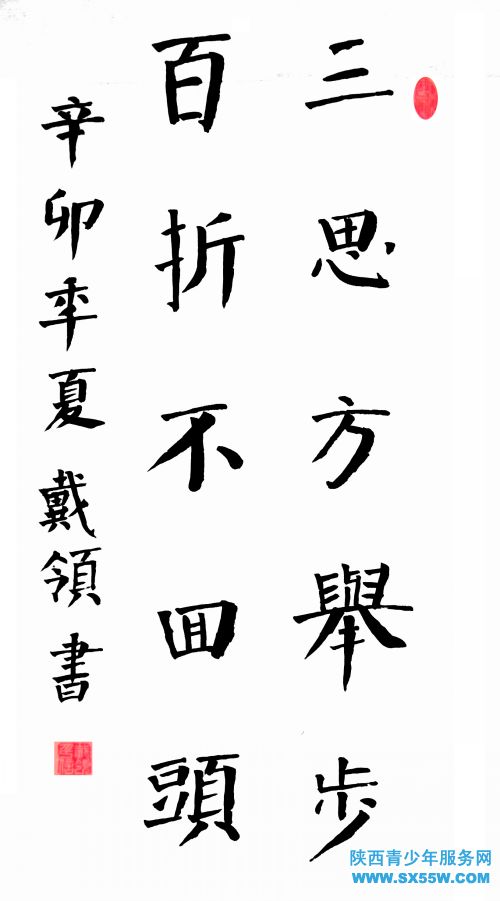 三思方舉步
百折不囬頭
辛卯年夏 戴領書
陕西青少年服务网
WWW.SX55W.COM